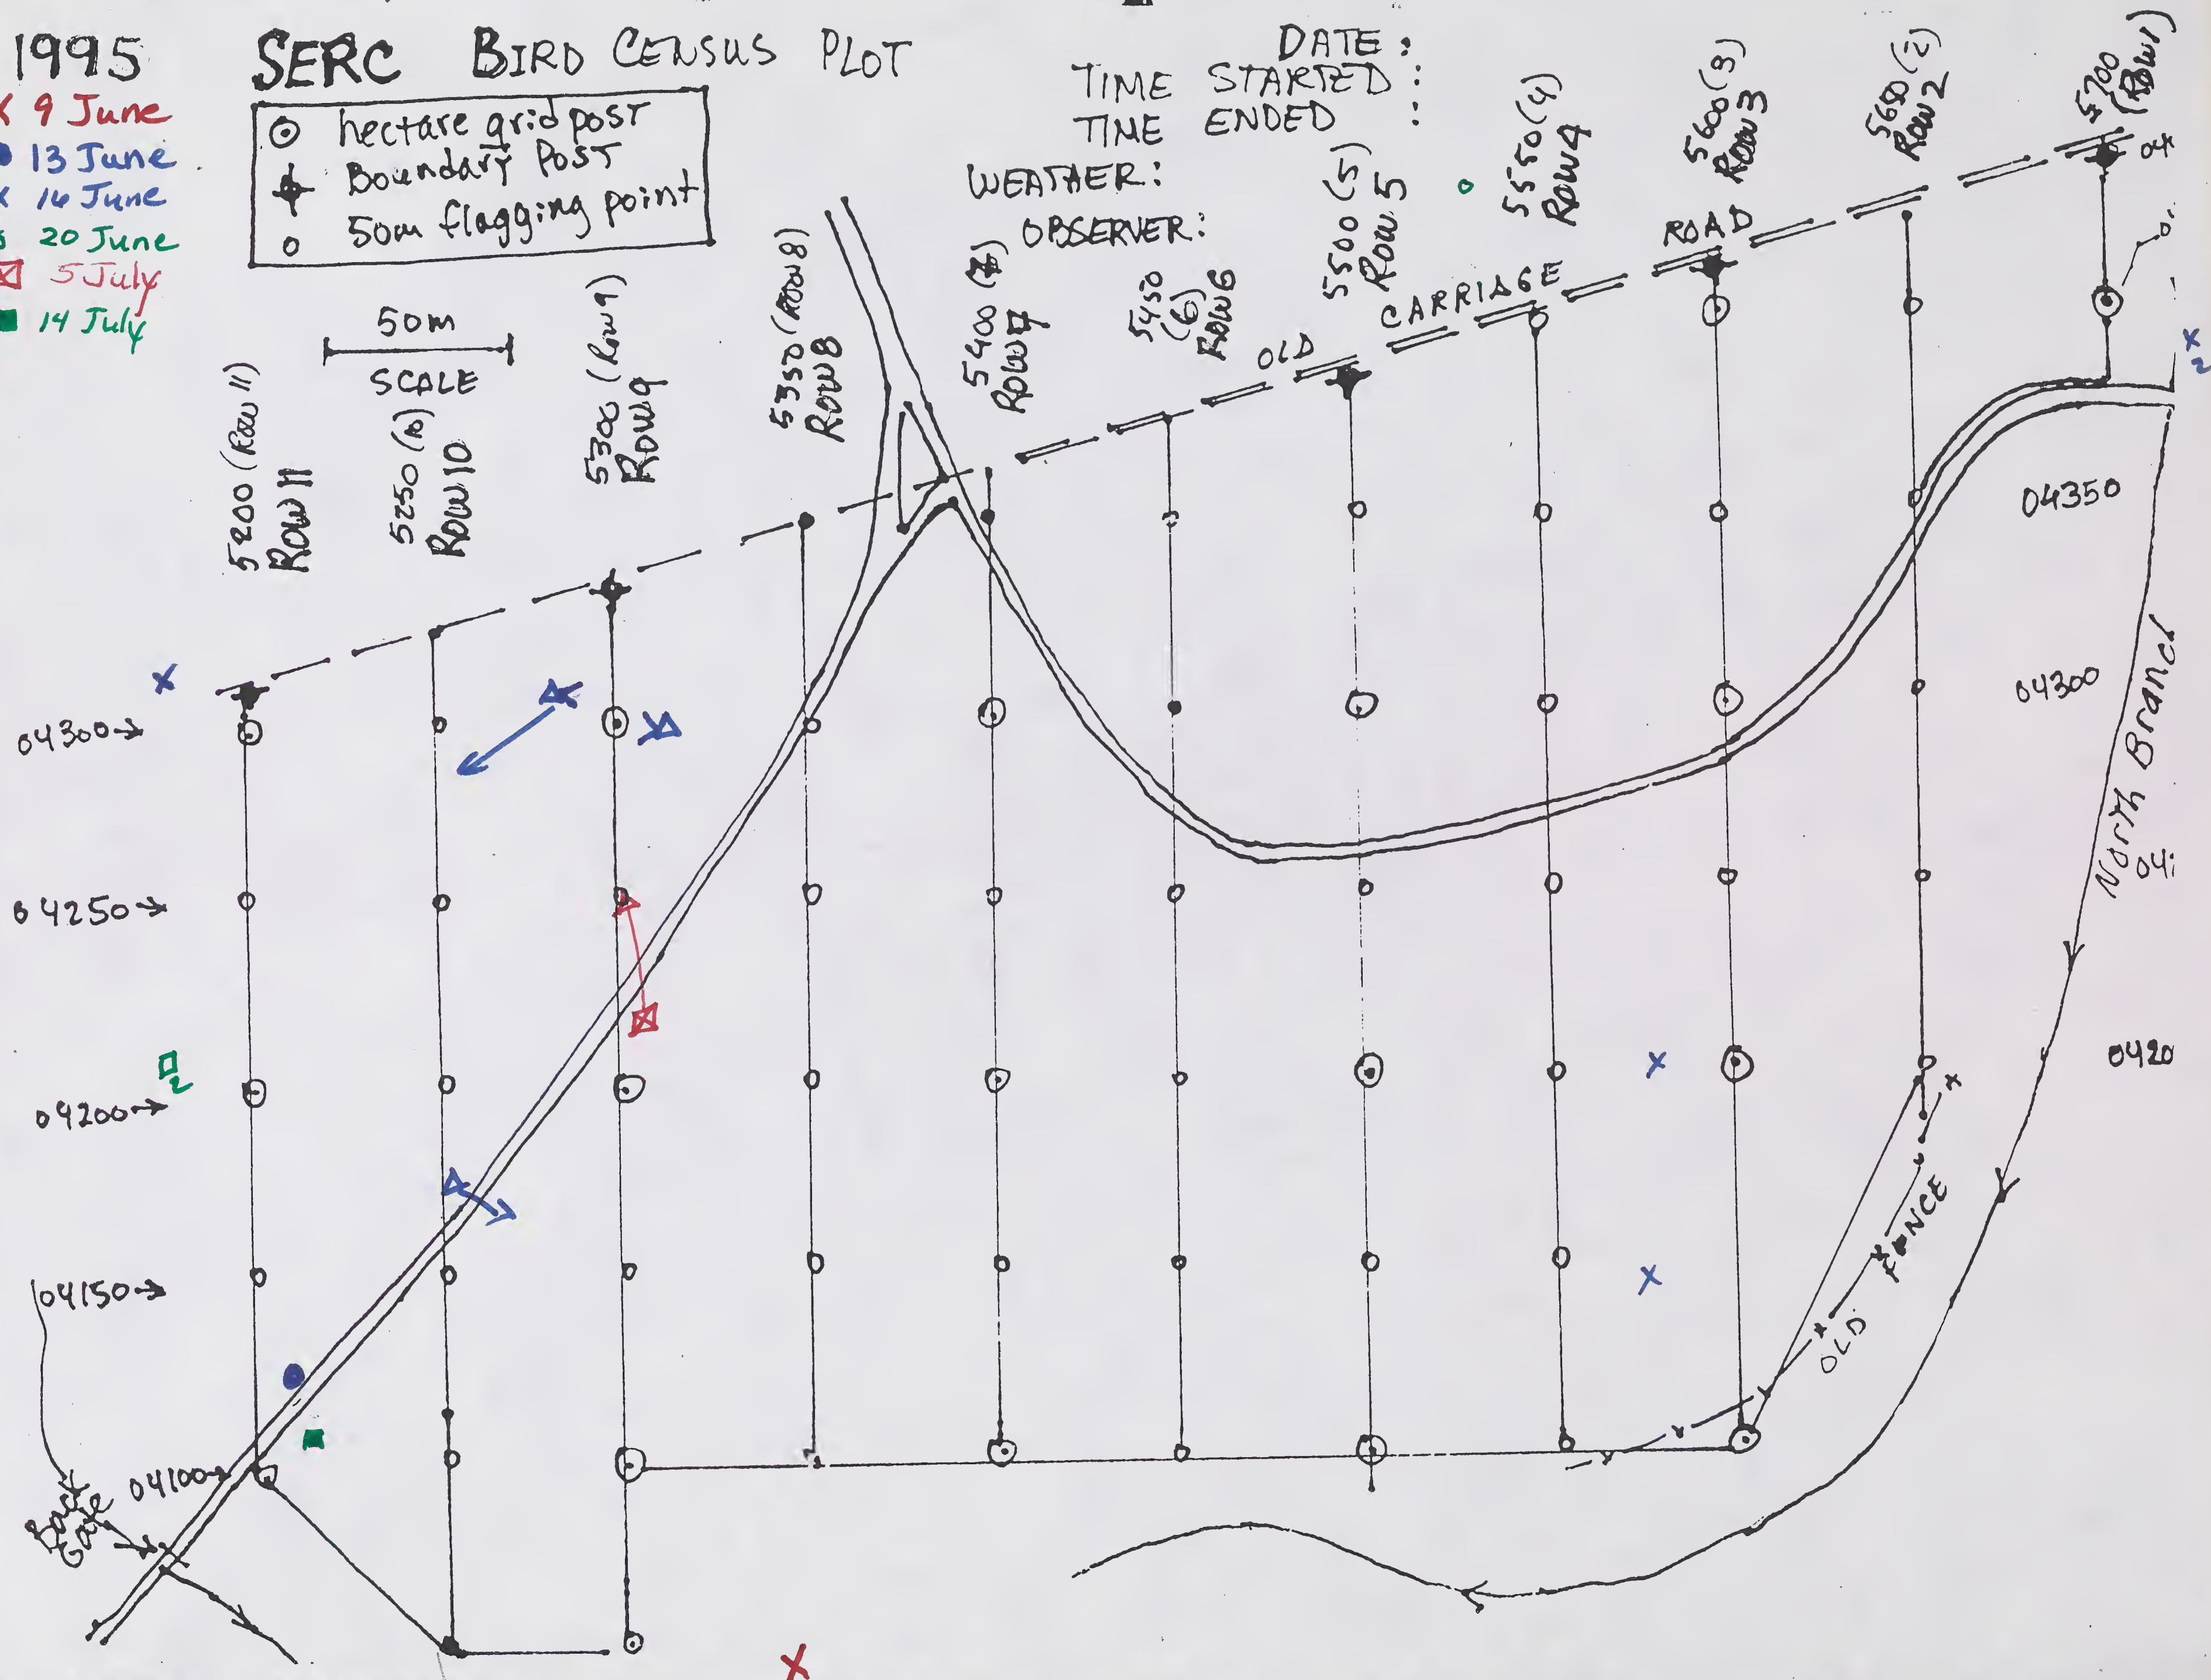 1995
SERC BIRD CENSUS PLOT
DATE :
TIME STARTED :
TIME ENDED :
WEATHER:
OBSERVER:
x 9 June
13 June
x 16 June
20 June
5 July
14 July
hectare grid post
Boundary Post
50m flagging point
50m
SCALE
5200 (Row 11)
ROW 11
5250 (10)
ROW 10
5300 (Row 9)
ROW 9
5350 (ROW 8)
ROW 8
5400
ROW 7
5450
(6)
ROW 6
5500 (5)
ROW 5
5550 (4)
ROW 4
5600 (3)
ROW 3
5650 (2)
ROW 2
5700
(ROW 1)
OLD CARRIAGE ROAD
x
2
04350
04300
04300→
04250→
04200→
04150→
04100→
2
0420
North Branch
OLD FENCE
Back
Gate